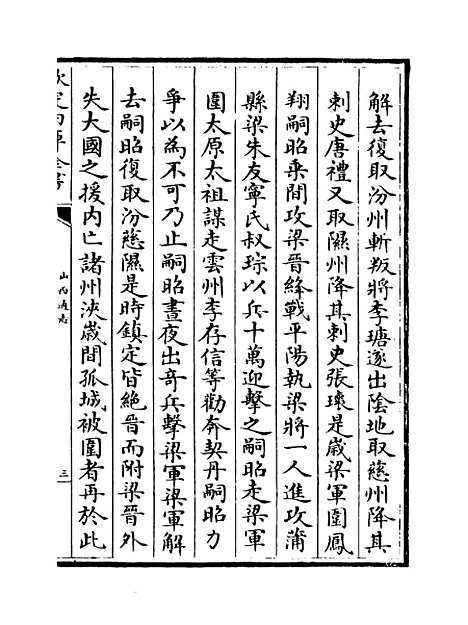 解去復取汾州斬叛將李瑭遂出隂地取慈州降其
刺史唐禮又取隰州降其刺史張瓌是嵗梁軍圍鳳
翔嗣昭乗間攻梁晉絳戰平陽執梁將一人進攻蒲
縣梁朱友寧氏叔琮以兵十萬迎擊之嗣昭走梁軍
圍太原太祖謀走雲州李存信等勸奔契丹嗣昭力
爭以為不可乃止嗣昭晝夜出竒兵擊梁軍梁軍解
去嗣昭復取汾慈隰是時鎮定皆絶晉而附梁晉外
失大國之援内亡諸州浹嵗間孤城被圍者再於此
欽定四庫全書
山西通志
三